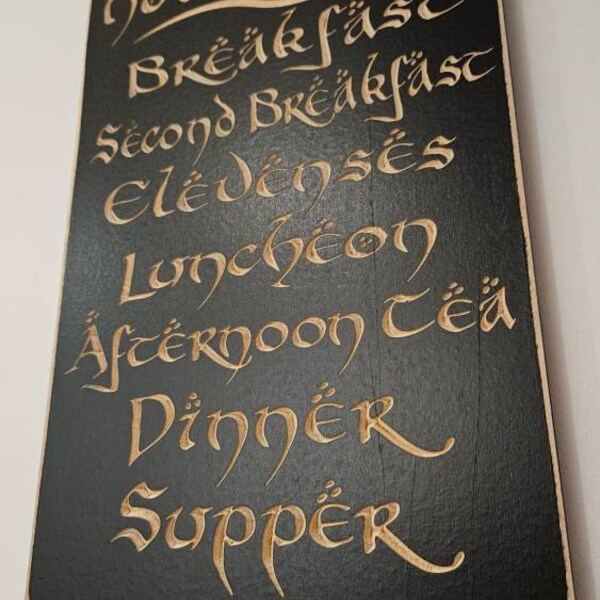 Breakfast
Second Breakfast
Elevenses
Luncheon
Afternoon Tea
Dinner
Supper